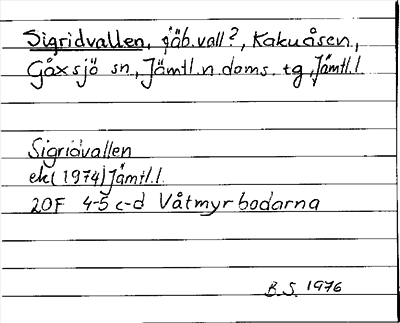 Sigridvallen, fäb.vall?, Kakuåsen,
Gåxsjö sn., Jämtl.n.doms.tg, Jämtl.l.
Sigridvallen
ek (1974) Jämtl.l.
20F 4-5 c-d Våtmyrbodarna
B.S. 1976